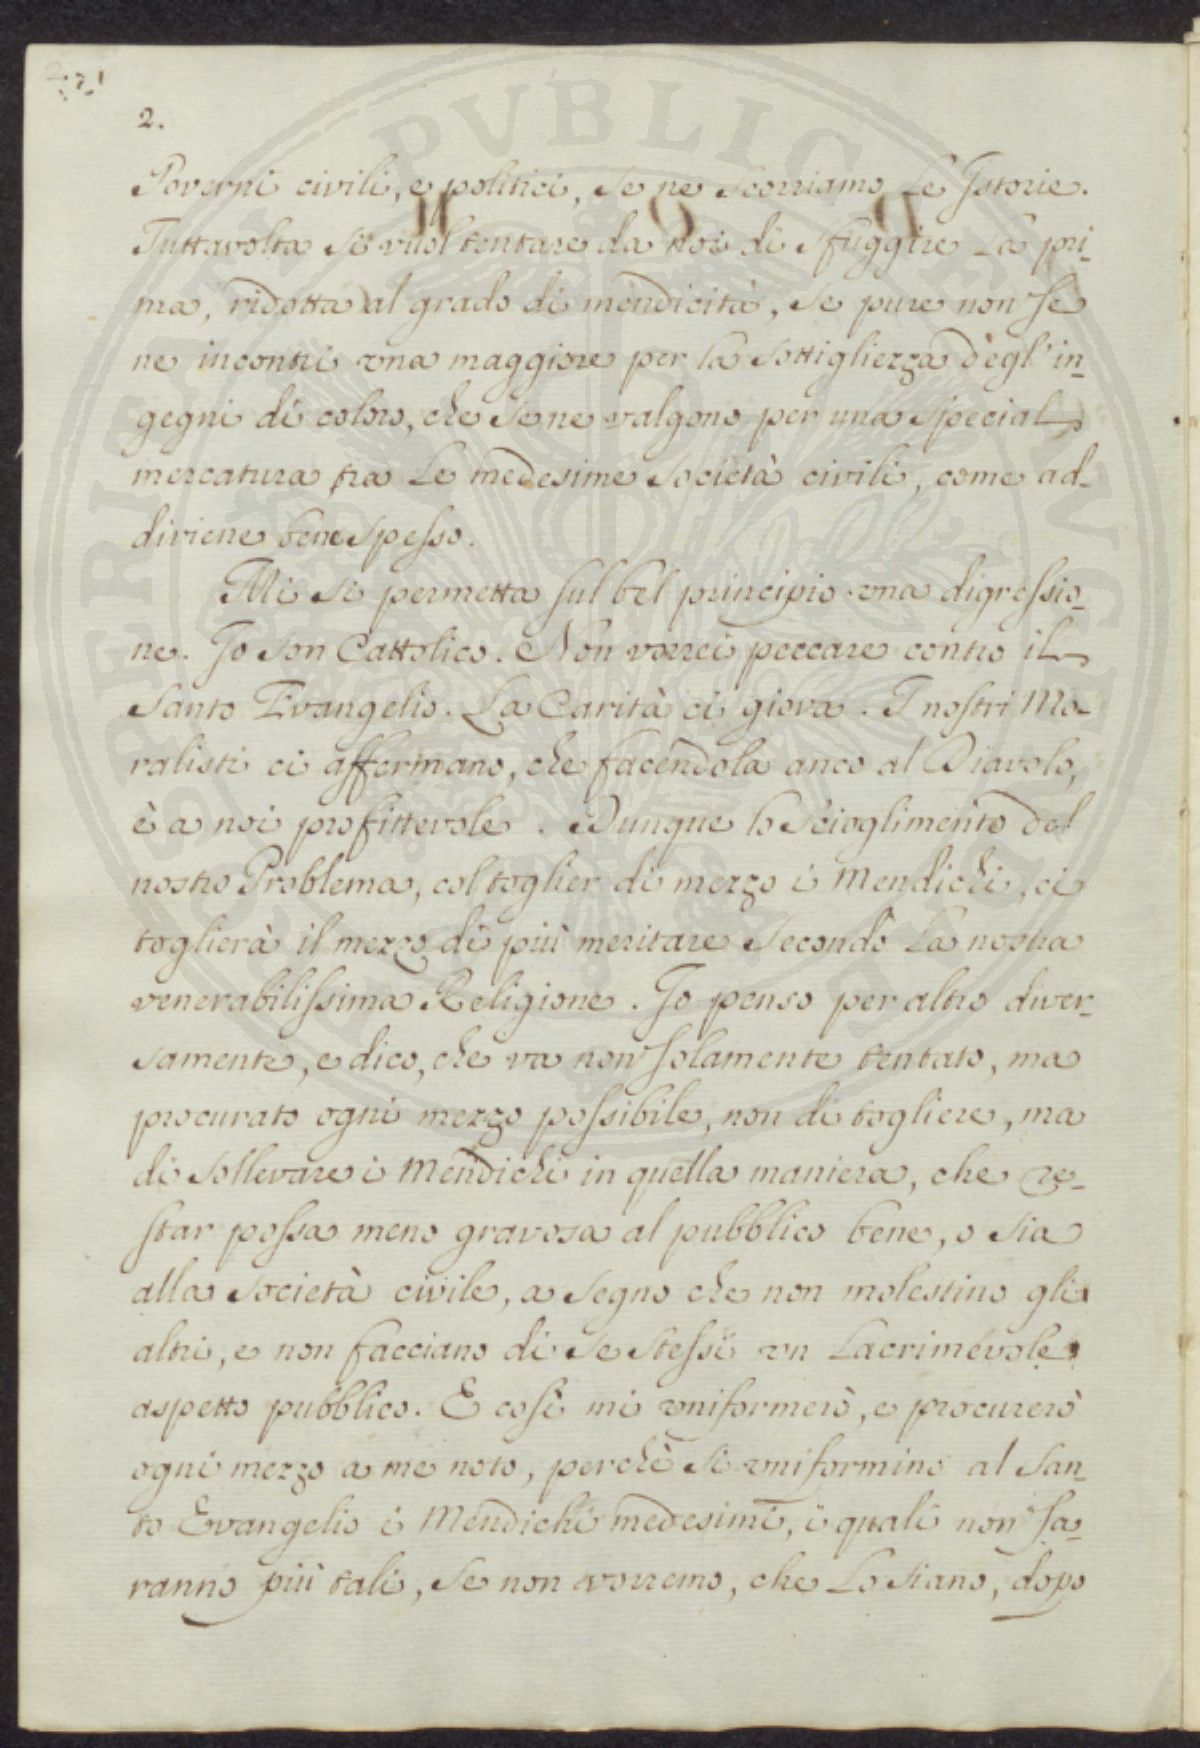 2.
Governi civili, e politici, se ne scorriamo le Istorie.
Tuttavolta si vuol tentare da noi di sfuggire la pri-
ma, ridotta al grado di mendicità, se pure non se
ne incontri una maggiore per la sottigliezza degl' in-
gegni di coloro, che se ne valgono per una special
mercatura tra le medesime società civili, come ad-
diviene bene spesso.
Mi si permetta sul bel principio una digressio-
ne. Io son Cattolico. Non vorrei peccare contro il
Santo Evangelio. La Carità ci giova. I nostri Mo-
ralisti ci affermano, che facendola anco al Diavolo,
è a noi profittevole. Dunque lo scioglimento del
nostro Problema, col toglier di mezzo i Mendichi, ci
toglierà il mezzo di più meritare secondo la nostra
venerabilissima Religione. Io penso per altro diver-
samente, e dico, che va non solamente tentato, ma
procurato ogni mezzo possibile, non di togliere, ma
di sollevare i Mendichi in quella maniera, che re-
star possa meno gravosa al pubblico bene, o sia
alla società civile, a segno che non molestino gli
altri, e non facciano di se stessi un lacrimevole
aspetto pubblico. E così mi uniformerò, e procurerò
ogni mezzo a me noto, perchè si uniformino al San-
to Evangelio i Mendichi medesimi, i quali non sa-
ranno più tali, se non vorremo, che lo siano, dopo